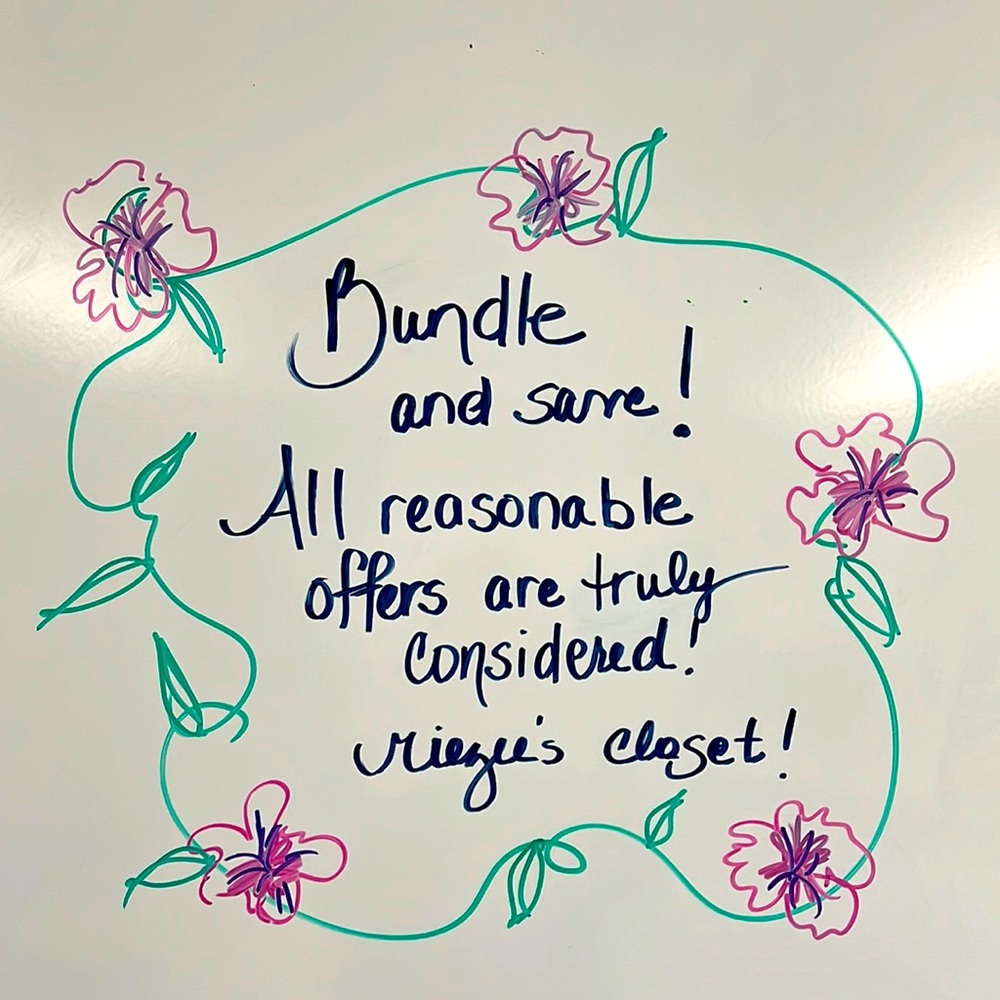 Bundle
and save!
All reasonable
offers are truly
considered!
closet!